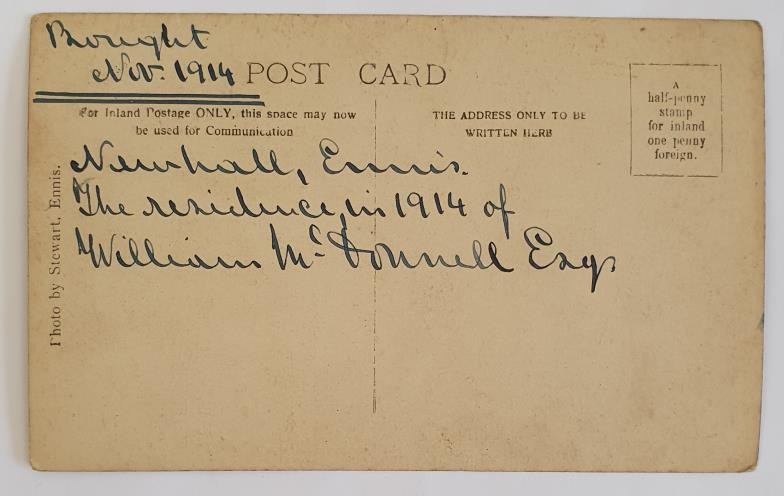 Bought
Nov. 1914
POST CARD
For Inland Postage ONLY, this space may now
be used for Communication
THE ADDRESS ONLY TO BE
WRITTEN HERE
A
half-penny
stamp
for inland
one penny
foreign.
Newhall, Ennis.
The residence in 1914 of
William Mc Donnell Esqr
Photo by Stewart, Ennis.